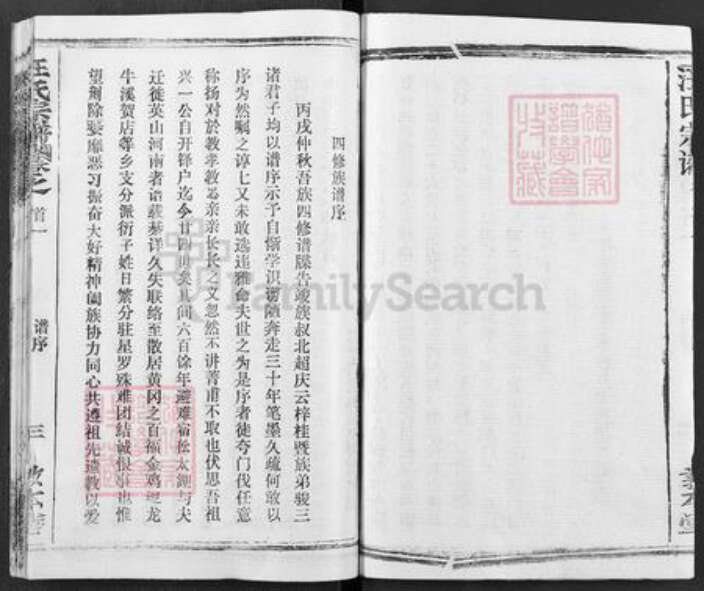 汪氏宗谱
四修族谱序
丙戌仲秋吾族四修谱牒告竣族叔北超庆云梓桂暨族弟骏三
诸君子均以谱序示予自惭学识谫陋奔走三十年笔墨久疏何敢以
序为然嘱之谆七又未敢迭违雅命夫世之为是序者徒夸门伐任意
称扬对於教孝教忠亲亲长长之文忽然不讲菁甫不取也伏思吾祖
兴一公自开铎户迄今廿四世矣其间六百馀年避难宿松太湖与夫
迁徙英山河南者谱载綦详久失联络至散居黄冈之百福金鸡 龙
牛溪贺店等乡支分派衍子姓日繁分驻星罗殊难团结诚恨事也惟
望剃除 靡恶习振奋大好精神阖族协力同心共遵祖先遗教以爱
汪氏宗谱卷之
首一
谱序
三
敦本堂
FamilySearch